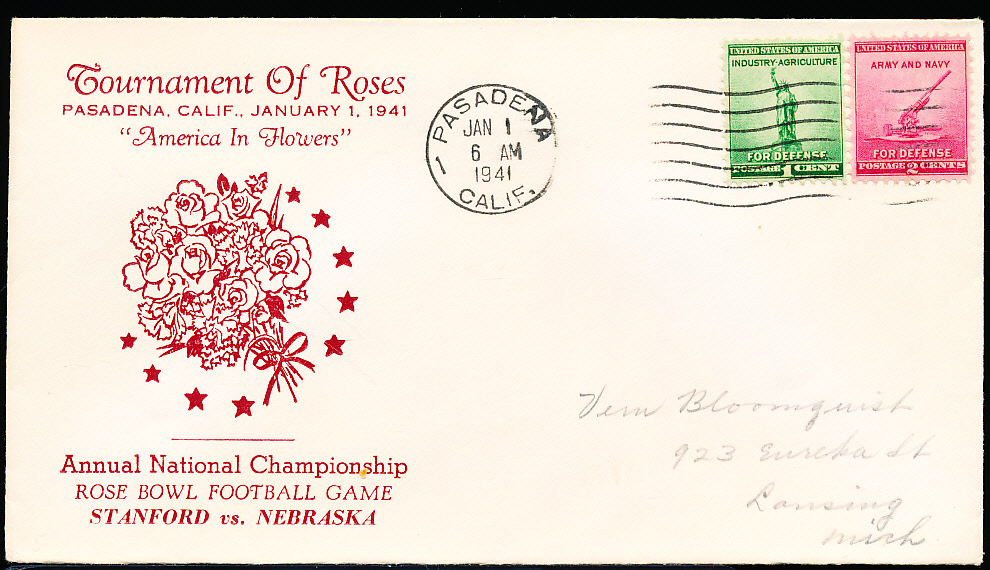 Tournament Of Roses
PASADENA, CALIF., JANUARY 1, 1941
"America In Flowers"
Annual National Championship
ROSE BOWL FOOTBALL GAME
STANFORD vs. NEBRASKA
PASADENA
JAN 1
6 AM
1941
CALIF.
UNITED STATES OF AMERICA
INDUSTRY·AGRICULTURE
FOR DEFENSE
POSTAGE 1 CENT
UNITED STATES OF AMERICA
ARMY AND NAVY
FOR DEFENSE
POSTAGE 2 CENTS
Vern Bloomquist
923 Eureka St
Lansing
Mich